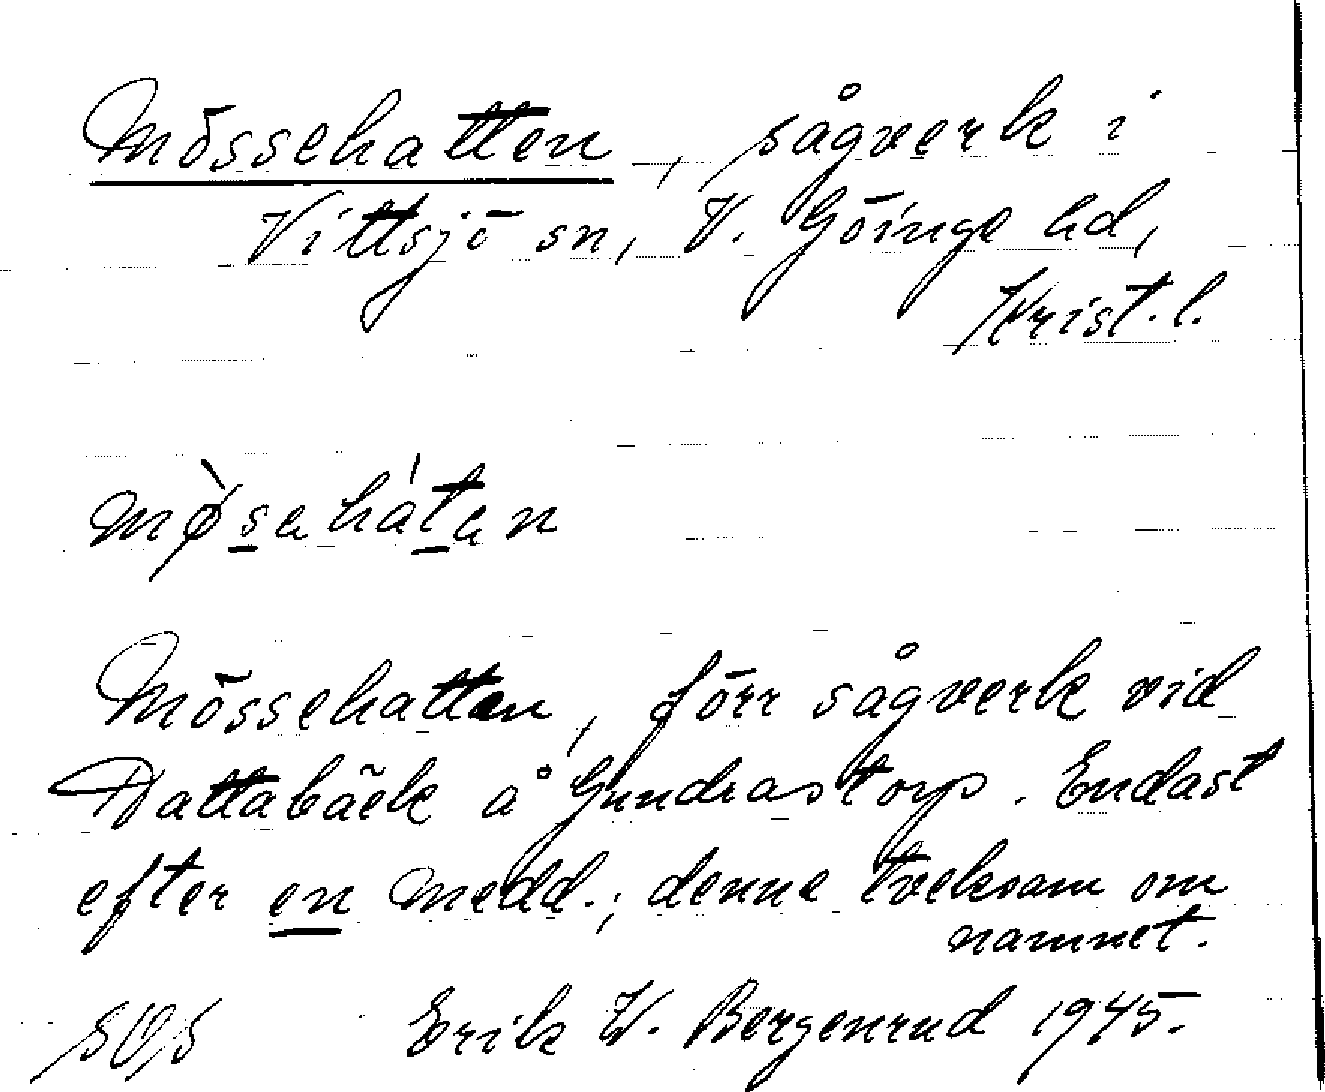 Mössehatten, sågverk i
Vittsjö sn, V. Göinge hd,
Krist. l.
mø̀sahátan
Mössehatten, förr sågverk vid
Dattabäck å Gundrastorp. Endast
efter en medd.; denne tveksam om
namnet.
Erik W. Bergenrud 1945.